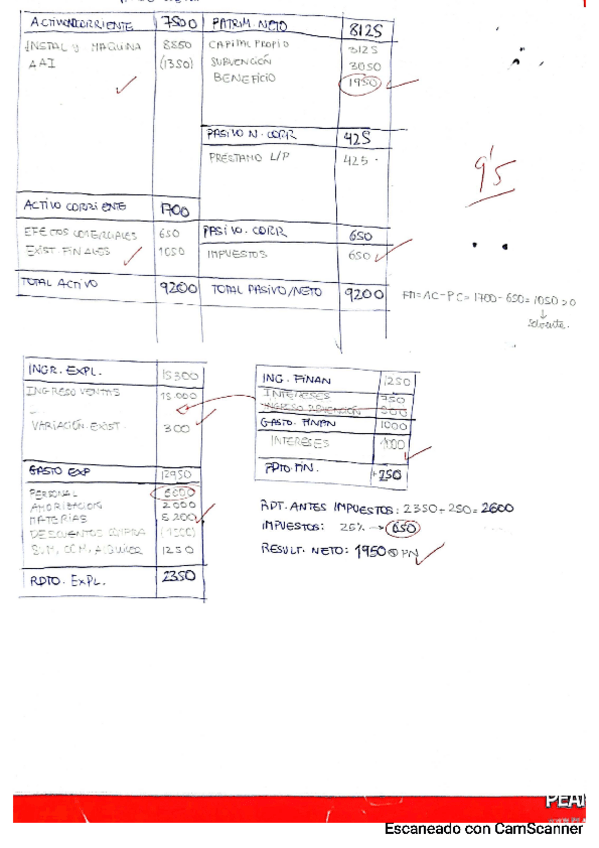 ACTIVO NO CORRIENTE 7500 PATRIM. NETO 8125
INSTAL Y MAQUINA 8850 CAPITAL PROPIO 3125
AAI (1350) SUBVENCIÓN 3050
BENEFICIO 1950
PASIVO N. CORR 425
PRÉSTAMO L/P 425
9'5
ACTIVO CORRIENTE 1700
EFECTOS COMERCIALES 650 PASIVO. CORR 650
EXIST. FINALES 1050 IMPUESTOS 650
TOTAL ACTIVO 9200 TOTAL PASIVO/NETO 9200
FM=AC-PC=1700-650=1050>0
↓
solvente.
INGR. EXPL. 15300
INGRESO VENTAS 15.000
VARIACIÓN EXIST. 300
GASTO EXP 12950
PERSONAL
AMORTIZACIÓN 2000
MATERIAS
DESCUENTOS COMPRA
SUM, COM, ALQUILER 1250
RDTO. EXPL. 2350
ING. FINAN 1250
INTERESES 750
500
GASTO. FINAN 1000
INTERESES 1000
RDTO FIN. +250
RDT. ANTES IMPUESTOS: 2350+250=2600
IMPUESTOS: 25% → 650
RESULT. NETO: 1950 PN
Escaneado con CamScanner